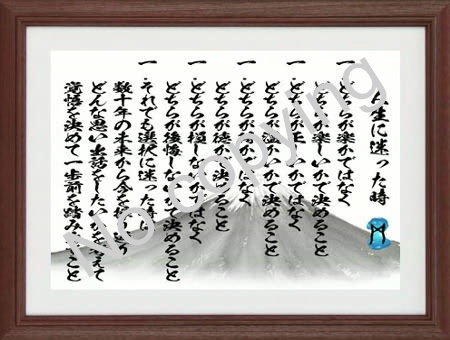 人生に迷った時
一.どちらが楽かではなく
どちらが楽しいかで決めること
一.どちらが正しいかではなく
どちらが いかで決めること
一.どちらが得かではなく
どちらが徳かで決めること
一.どちらが しないかではなく
どちらが後悔しないかで決めること
一.それでも選択に迷った時は
数十年の未来から今を振り返り
どんな思い出話をしたいかを考えて
覚悟を決めて一歩前を踏み出すこと
No copying